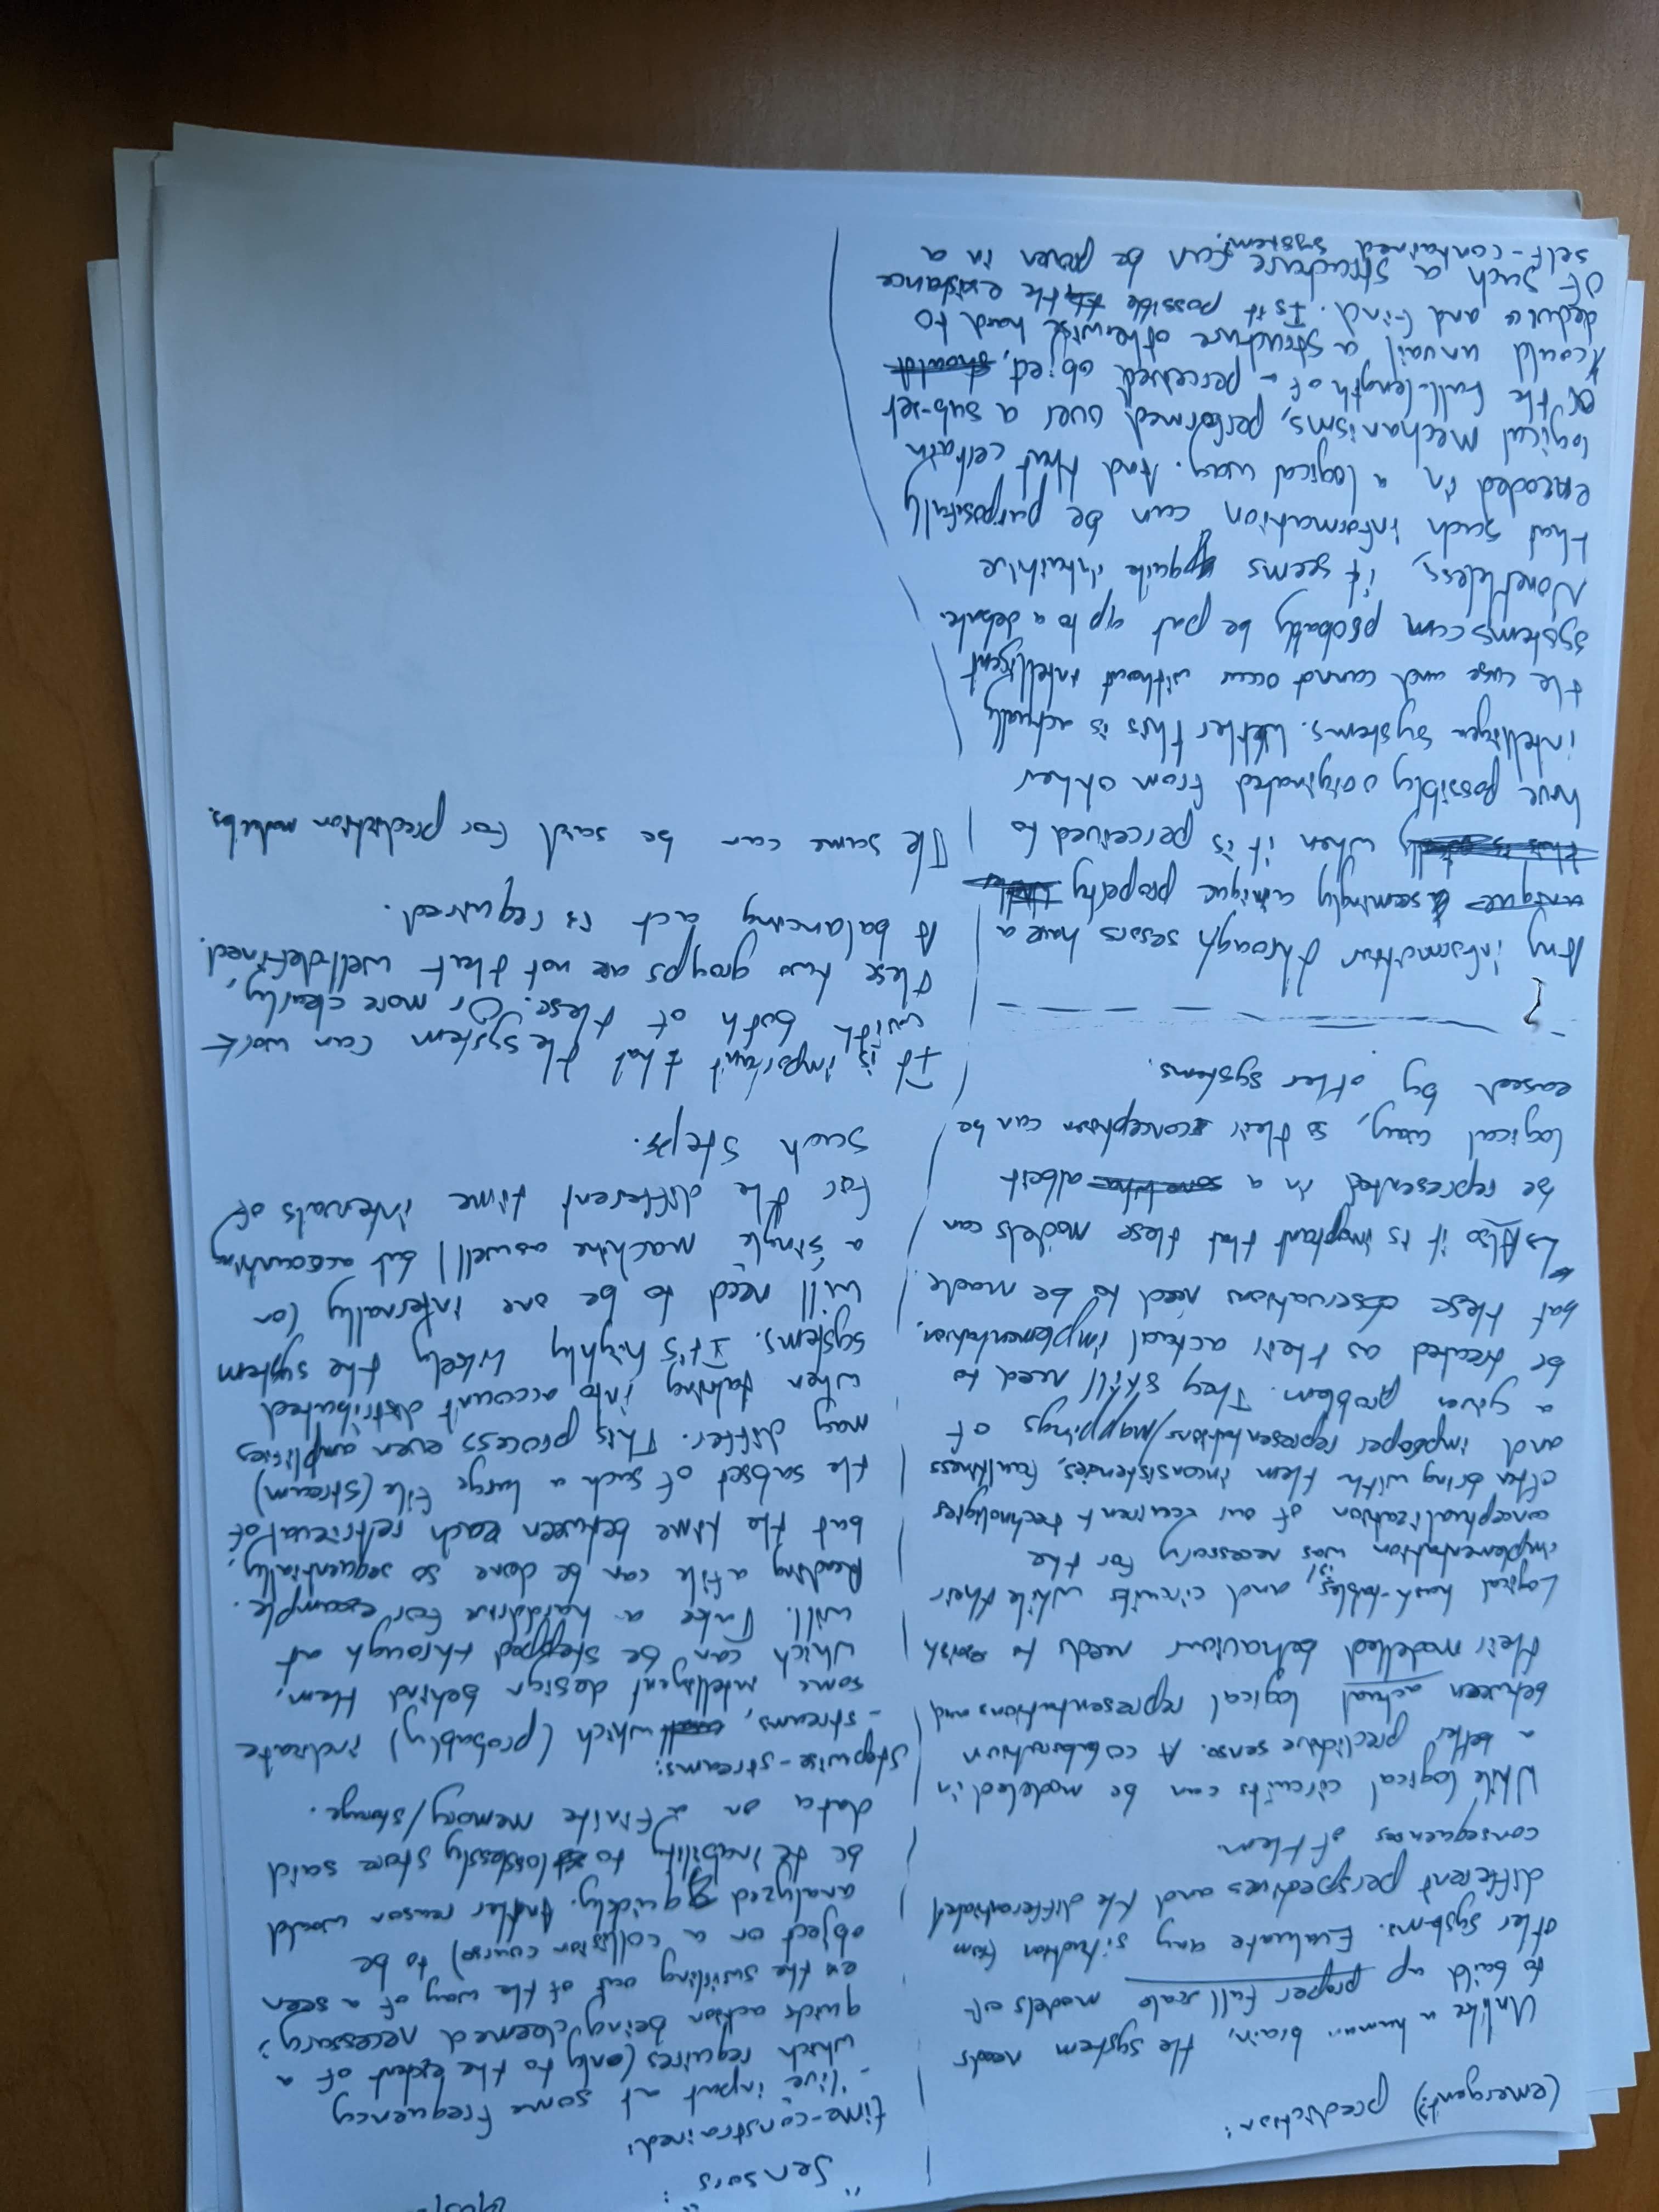 (emergent?) prediction:
Unlike a human brain, the system needs
to build up proper full scale models of
other systems. Evaluate any situation from
different perspectives and the differentiated
consequences of them
While logical circuits can be modeled in
a better predictive sense. A combination
between actual logical representations and
their modelled behaviour needs to exist
Logical hash-tables, and circuits while their
implementation was necessary for the
conceptualization of our current technoligies
often bring with them inconsistencies, faultness
and improper representations/mappings of
a given problem. They still need to
be treated as their actual implementation,
but these observations need to be made.
↳ Also it is imptant that these models can
be represented in a somewhat albeit
logical way, so their conception can be
eased by other systems.
Any information through sesors have a
unique seemingly unique property
this is when it is perceived to
have possibly originated from other
intelligen systems. Wether this is actually
the case and cannot occur without intelligent
systems can probably be put up to a debate.
Nonetheless, it seems quite intuitive
that such information can be purposefully
encoded in a logical way. And that certain
logical mechanisms, performed over a sub-set
of the full-length of a perceived object, should
could unvail a structure otherwise hard to
deduce and find. Is it possible the existance
of such a structure can be proven in a
self-contained system?
"Sensors":
time-constrained:
- "live input at some frequency
which requires (only to the extent of a
quick action being deemed necessary;
ex the swirling out of the way of a seen
object on a collision course) to be
analyzed quickly. Anther reason would
be the inability to losslessly store said
data on a finite memory/storage.
Stepwise-streams:
- streams, which (probably) indicate
some intelligent design behind them,
which can be stepped through at
will. Take a harddrive for example.
Reading a file can be done so sequentially;
but the time between each retrieval of
the subset of such a large file (stream)
may differ. This process even amplifies
when taking into account distributed
systems. It's highly likely the system
will need to be one internally (on
a single machine aswell) but accounting
for the different time intervals of
such steps.
It is important that the system can work
with both of these. Or more clearly,
these two groups are not that well-defined.
A balancing act is required.
The same can be said for prediction models.